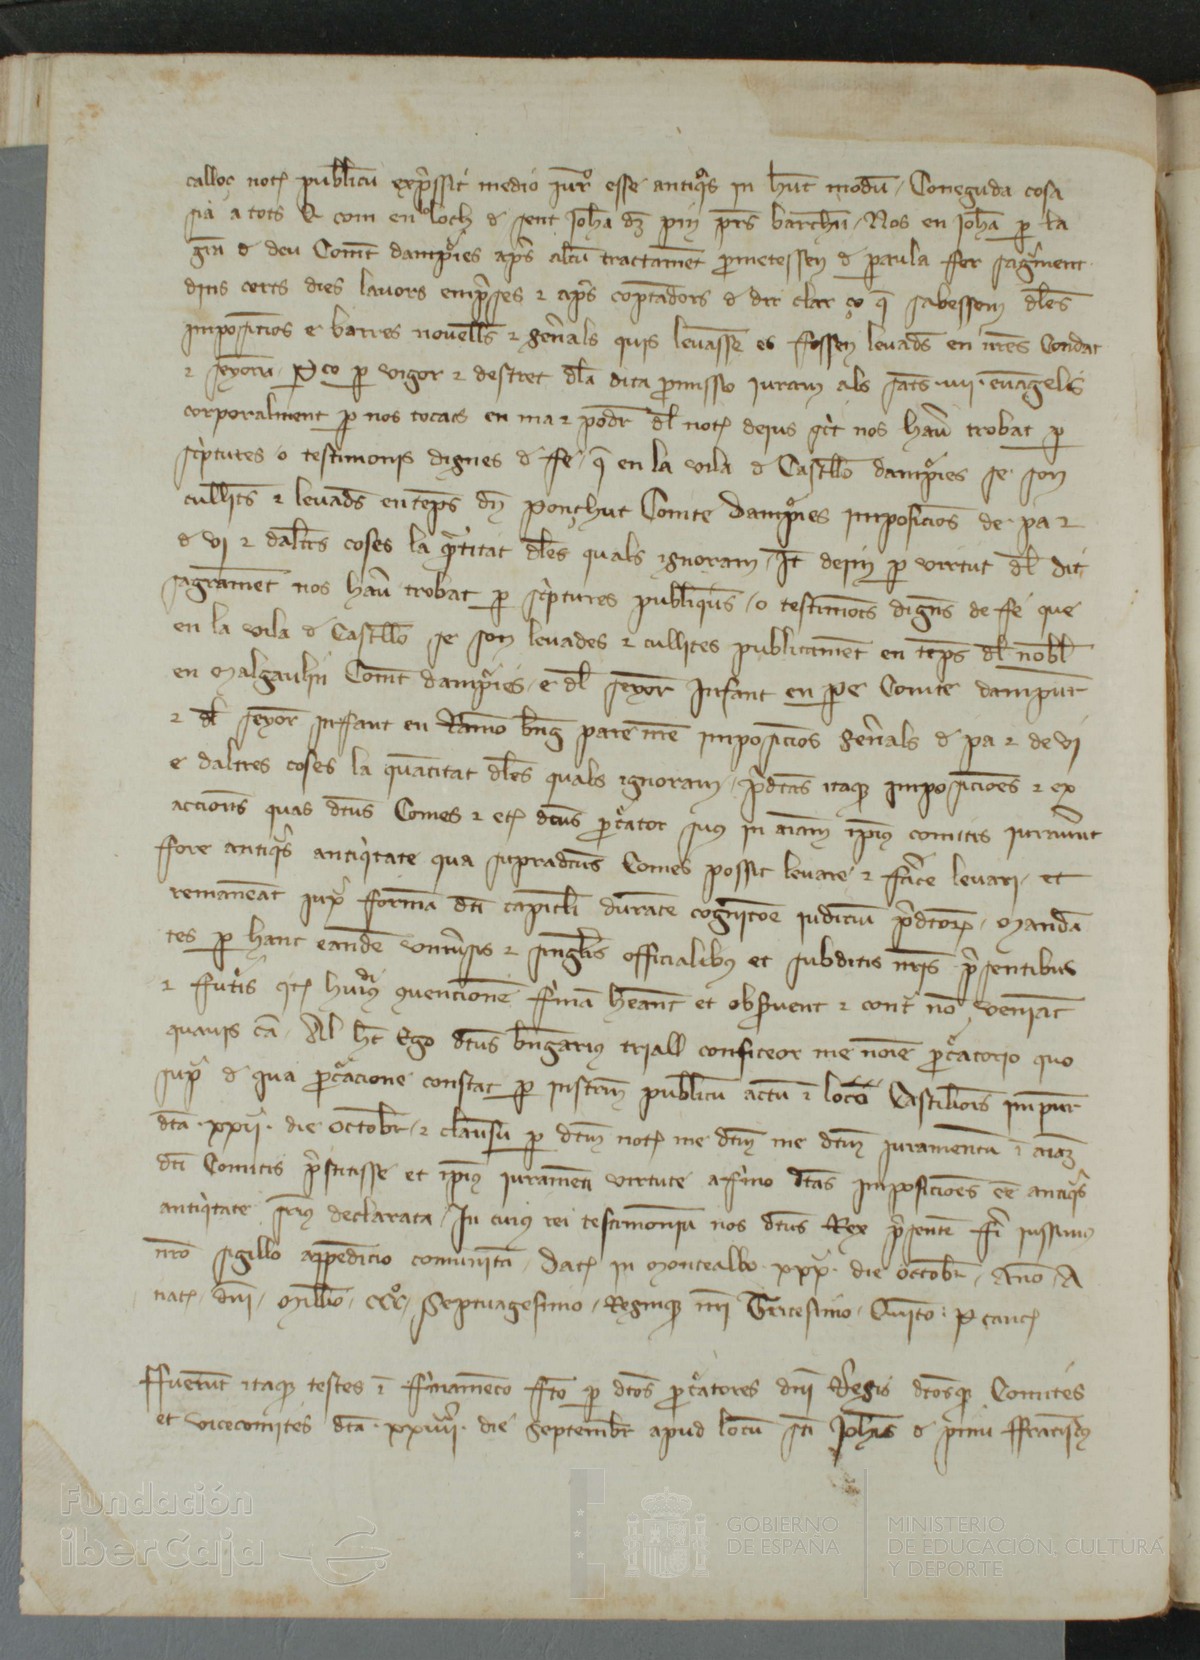 calloç not publicu expssit medio iuro esse antiqs in hut modu / Coneguda cosa
sia a tots q com en loch d sent Johā d pin prs barchn / Nos en Johā p la
gra d deu Comt dampies aps alcu tractamet prometessen d paula fer sagment
dins certs dies lauors empses z aps coptadors d dir clar ço q sabessem dles
imposicios e barres nouells z genals quis leuasse es fossen leuads en nres Condat
z seyoria / P ço p vigor z destret dla dita pmissio iuram als sats iiii euagelis
corporalment p nos tocats en ma z podr dl not dejus sct nos hau trobat p
sciptures o testimonis dignes d ffe q en la vila d Castello dampies se son
cullits z leuads en teps dn ponçhut Comte dampies imposicios de pa z
d vi z daltrs coses la qtitat dles quals ignoram / It dejm p virtut dl dit
sagramet nos hau trobat p sciptures publiqus / o testimonis digns de ffe que
en la vila d Castello se son leuades z cullites publicamet en teps dl nobl
en Malgauli Comt dampies / e dl seyor Infant en pe Comte dampur
z dl seyor inffant en Ramo bng pare nre imposicios genals d pa z de vi
e daltres coses la quatitat dles quals ignoram / pdtas itaq imposiciones z ex
accions quas dtus Comes z et dtus pcator suus in aiam ipius comitis iurauut
fore antiqs antiqtate qua supradtus Comes possit leuare z face leuari / et
remaneat iux forma dti capitli durate cognicoe iudiciu pdtor / Manda
tes p hanc eande vniusis z singlis officialibus et subditis nris psentibus
z ffutis qt huius quencione firma heant et obseruent z cont no veniat
quauis ca / Al ht Ego dtus bngarius triall confiteor me noie pcatorio quo
sup d qua pcacione constat p instrm publicu actu i loco Castilions impur
dta xxii die octobr / z clausu p dtm not me dtm me dtm iuramentu i aiaz
dti Comitis pstitisse et ipius iuramenti virtute affirmo dtas imposiciones ee antiqs
antiqtate srius declarata / In cuius rei testimoniu nos dtus Rex psente fi iussimus
nro sigillo appendicio comuniri / Dat in Montealbo xxx die octobr / Ano A
nat dni / Millo / CCC / Septuagesimo / Regniq nri Tricesimo / Quito : P canc
Fueriut itaq testes i firmameto fto p dtos pcatores dni Regis dtosq Comites
et vicecomites dta xxiiii die septembr apud locu sti Johis d pinu ffracisc
Fundación
iberCaja
GOBIERNO
DE ESPAÑA
MINISTERIO
DE EDUCACIÓN, CULTURA
Y DEPORTE